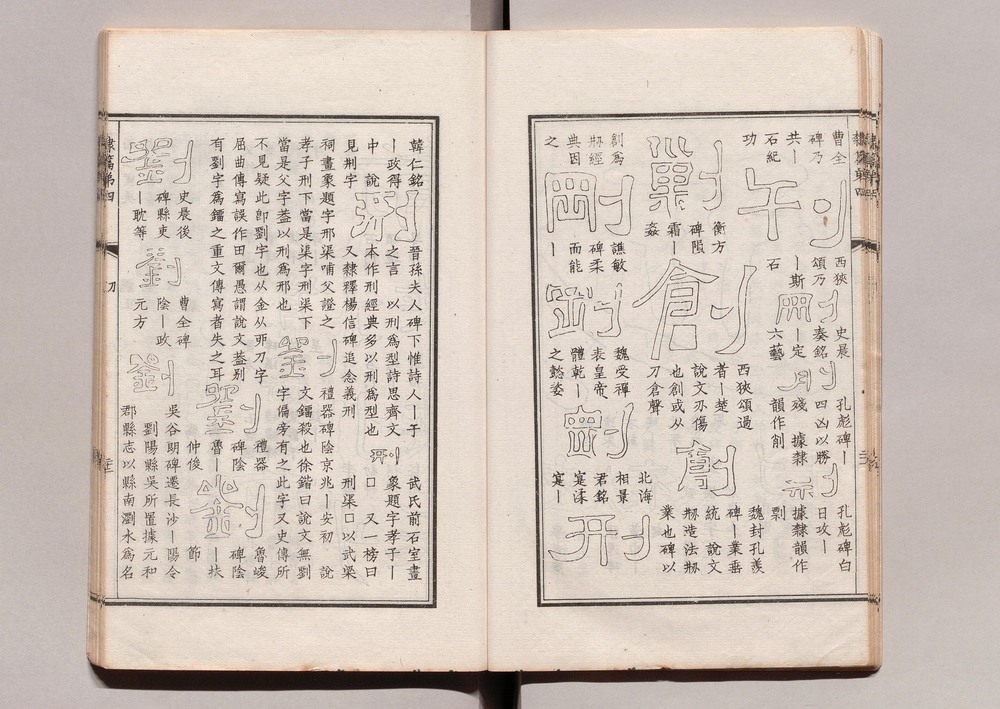 刊
曹全
碑乃
共丨
石紀
功
西狹
頌乃
丨斯
石
刪
史晨
奏銘
丨定
六藝
孔彪碑丨
四凶以勝
殘　據隸
韻作剛
孔彪碑白
日攻丨
據隸韻作
剽
衡方
碑隕
霜丨
姦
創
西狹頌過
者丨楚
說文刅傷
也創或从
刀倉聲
創
魏封孔羨
碑丨業垂
統　說文
刱造法刱
業也碑以
創為
刱經
典因
之
剛
譙敏
碑柔
而能
丨
剛
魏受禪
表皇帝
體乾丨
之懿姿
剛
北海
相景
君銘
寔柔
寔丨
刑
韓仁銘
丨政得
中　說
見刑字
刑
晉孫夫人碑下惟詩人丨于
之言　以刑為型詩思齊文
本作刑經典多以刑為型也
又隸釋楊信碑追念義刑
刑
武氏前石室畫
象題字孝子丨
口　又一榜曰
刑渠口以武梁
祠畫象題字邢渠哺父證之
孝子刑下當是渠字刑渠下
當是父字葢以刑為邢也
劉
禮器碑陰京兆丨安初　說
文鐂殺也徐鍇曰說文無劉
字偏旁有之此字又史傳所
不見疑此即劉字也从金从丣刀字
屈曲傳寫誤作田爾愚謂說文葢別
有劉字為鐂之重文傳寫者失之耳
劉
禮器
碑陰
魯丨
仲俊
劉
魯峻
碑陰
丨扶
節
劉
史晨後
碑縣吏
丨耽等
劉
曹全碑
陰丨政
元方
劉
吳谷朗碑遷長沙丨陽令
劉陽縣吳所置據元和
郡縣志以縣南瀏水為名
隸篇弟四
刀